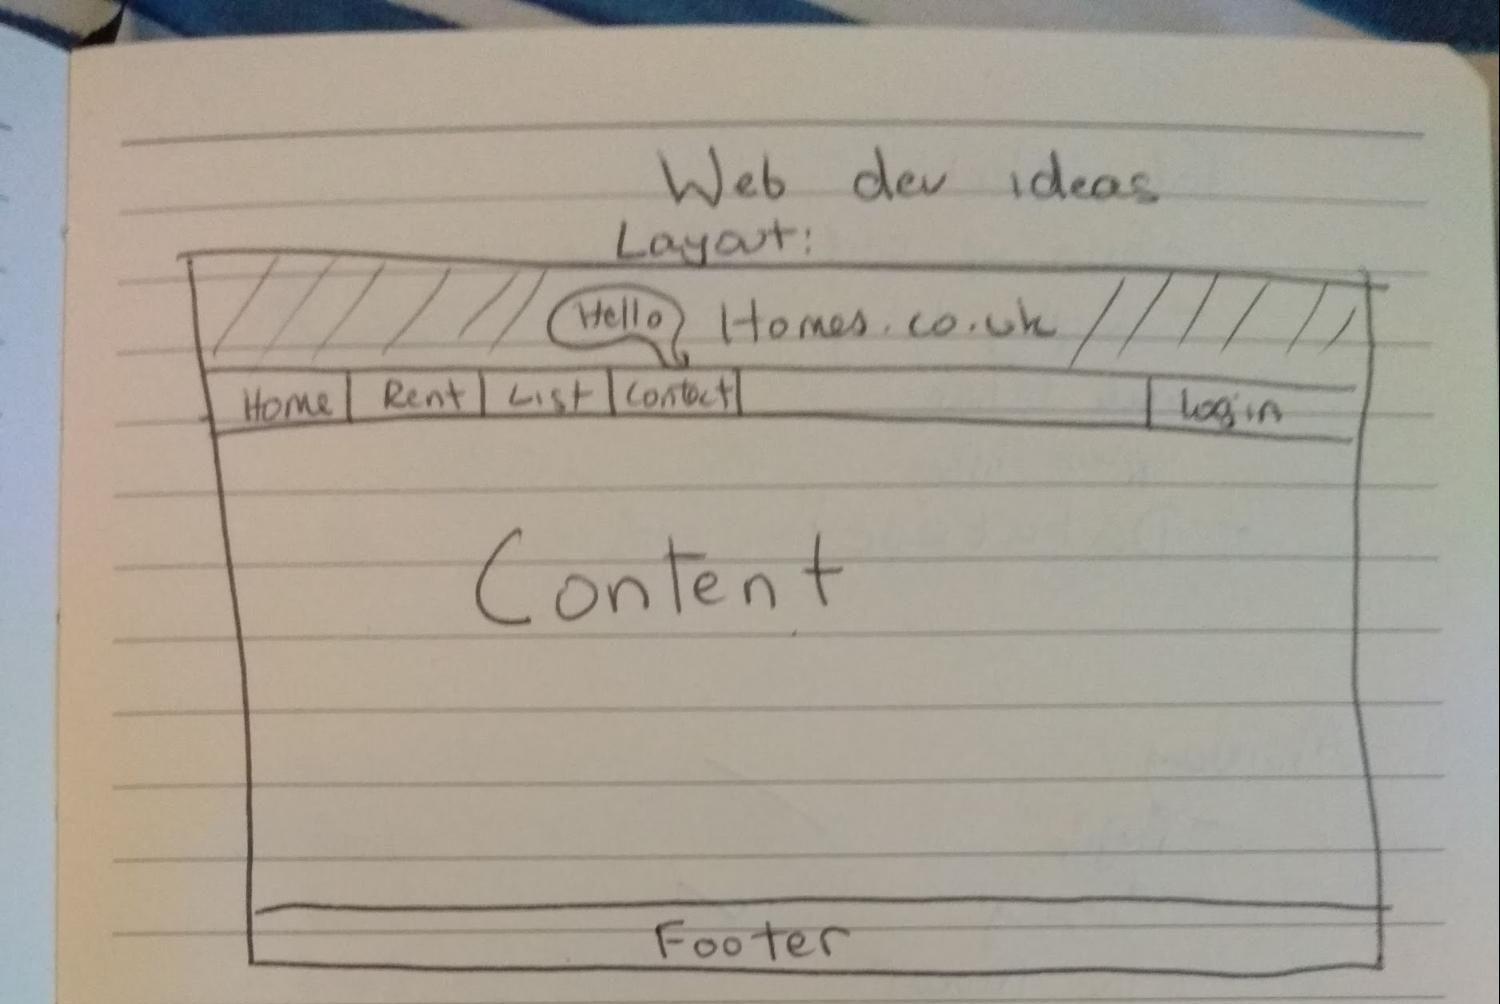 Web dev ideas
Layout:
Hello Homes.co.uk
Home Rent List Contact Login
Content
Footer